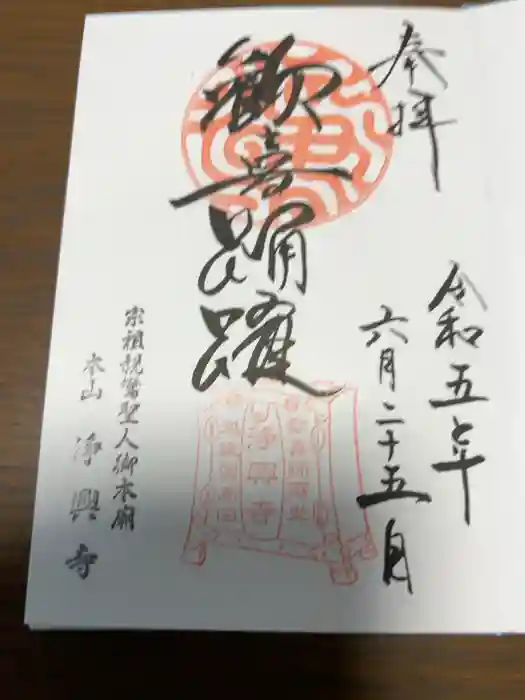 奉拝
令和五年
六月二十五日
歓喜踊躍
宗祖親鸞聖人御本廟
本山 浄興寺
浄興寺